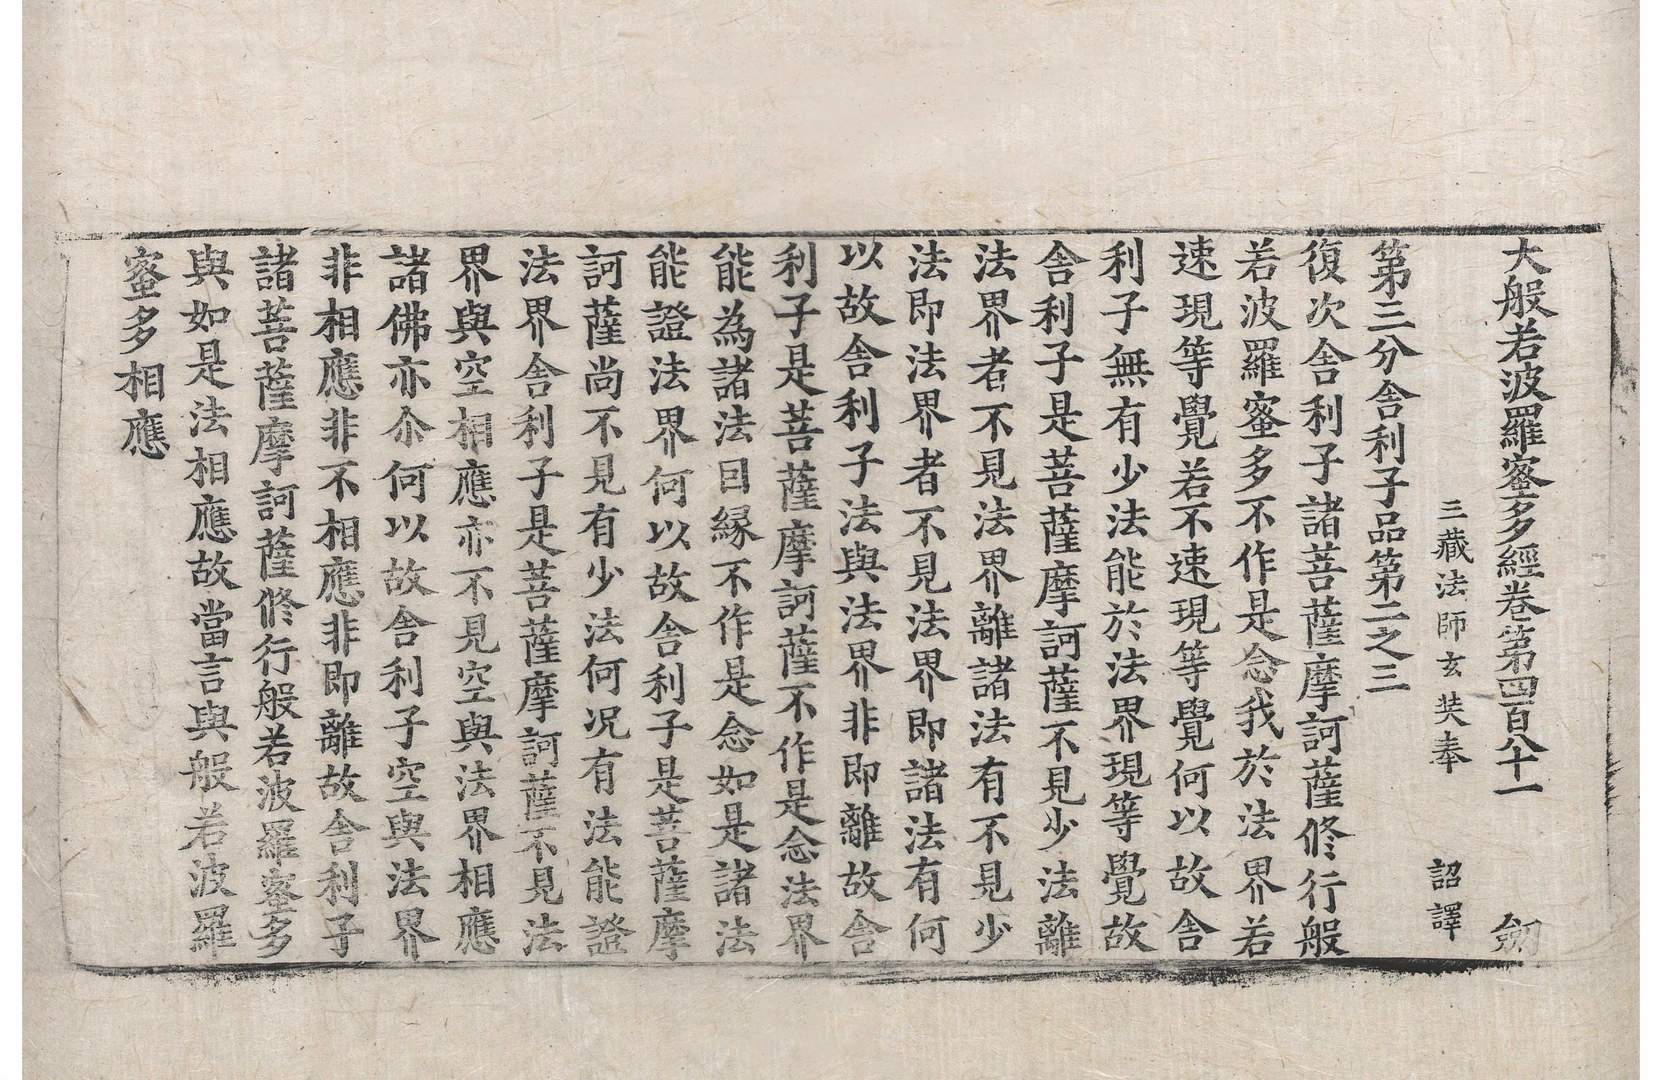 大般若波羅蜜多經卷第四百八十一 劒
三藏法師玄奘奉 詔譯
第三分舍利子品第二之三
復次舍利子諸菩薩摩訶薩修行般
若波羅蜜多不作是念我於法界若
速現等覺若不速現等覺何以故舍
利子無有少法能於法界現等覺故
舍利子是菩薩摩訶薩不見少法離
法界者不見法界離諸法有不見少
法即法界者不見法界即諸法有何
以故舍利子法與法界非即離故舍
利子是菩薩摩訶薩不作是念法界
能為諸法因緣不作是念如是諸法
能證法界何以故舍利子是菩薩摩
訶薩尚不見有少法何況有法能證
法界舍利子是菩薩摩訶薩不見法
界與空相應亦不見空與法界相應
諸佛亦尒何以故舍利子空與法界
非相應非不相應非即離故舍利子
諸菩薩摩訶薩修行般若波羅蜜多
與如是法相應故當言與般若波羅
蜜多相應